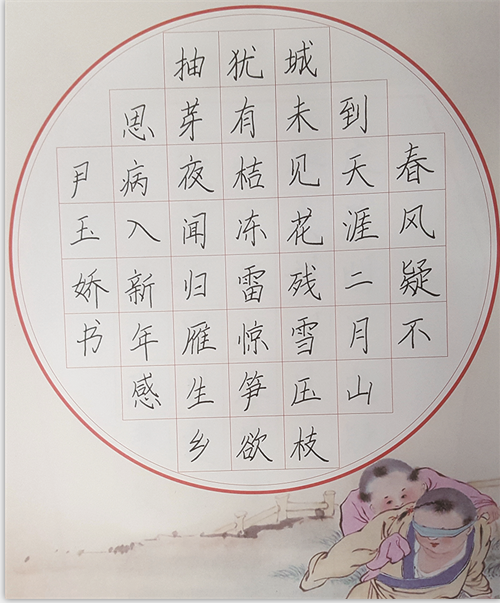 春风疑不
到天涯二月山
城未见花残雪压枝
犹有桔冻雷惊笋欲
抽芽夜闻归雁生乡
思病入新年感
尹玉娇书